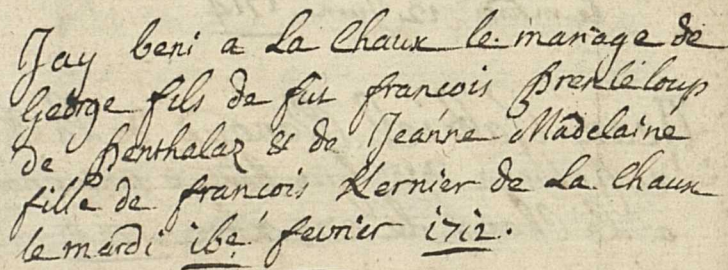 Jay beni a La Chaux le mariage de
George fils de fut françois Prenleloup
de Penthalaz & de Jeanne Madelaine
fille de françois Kernier de La Chaux
le mardi 16e février 1712.